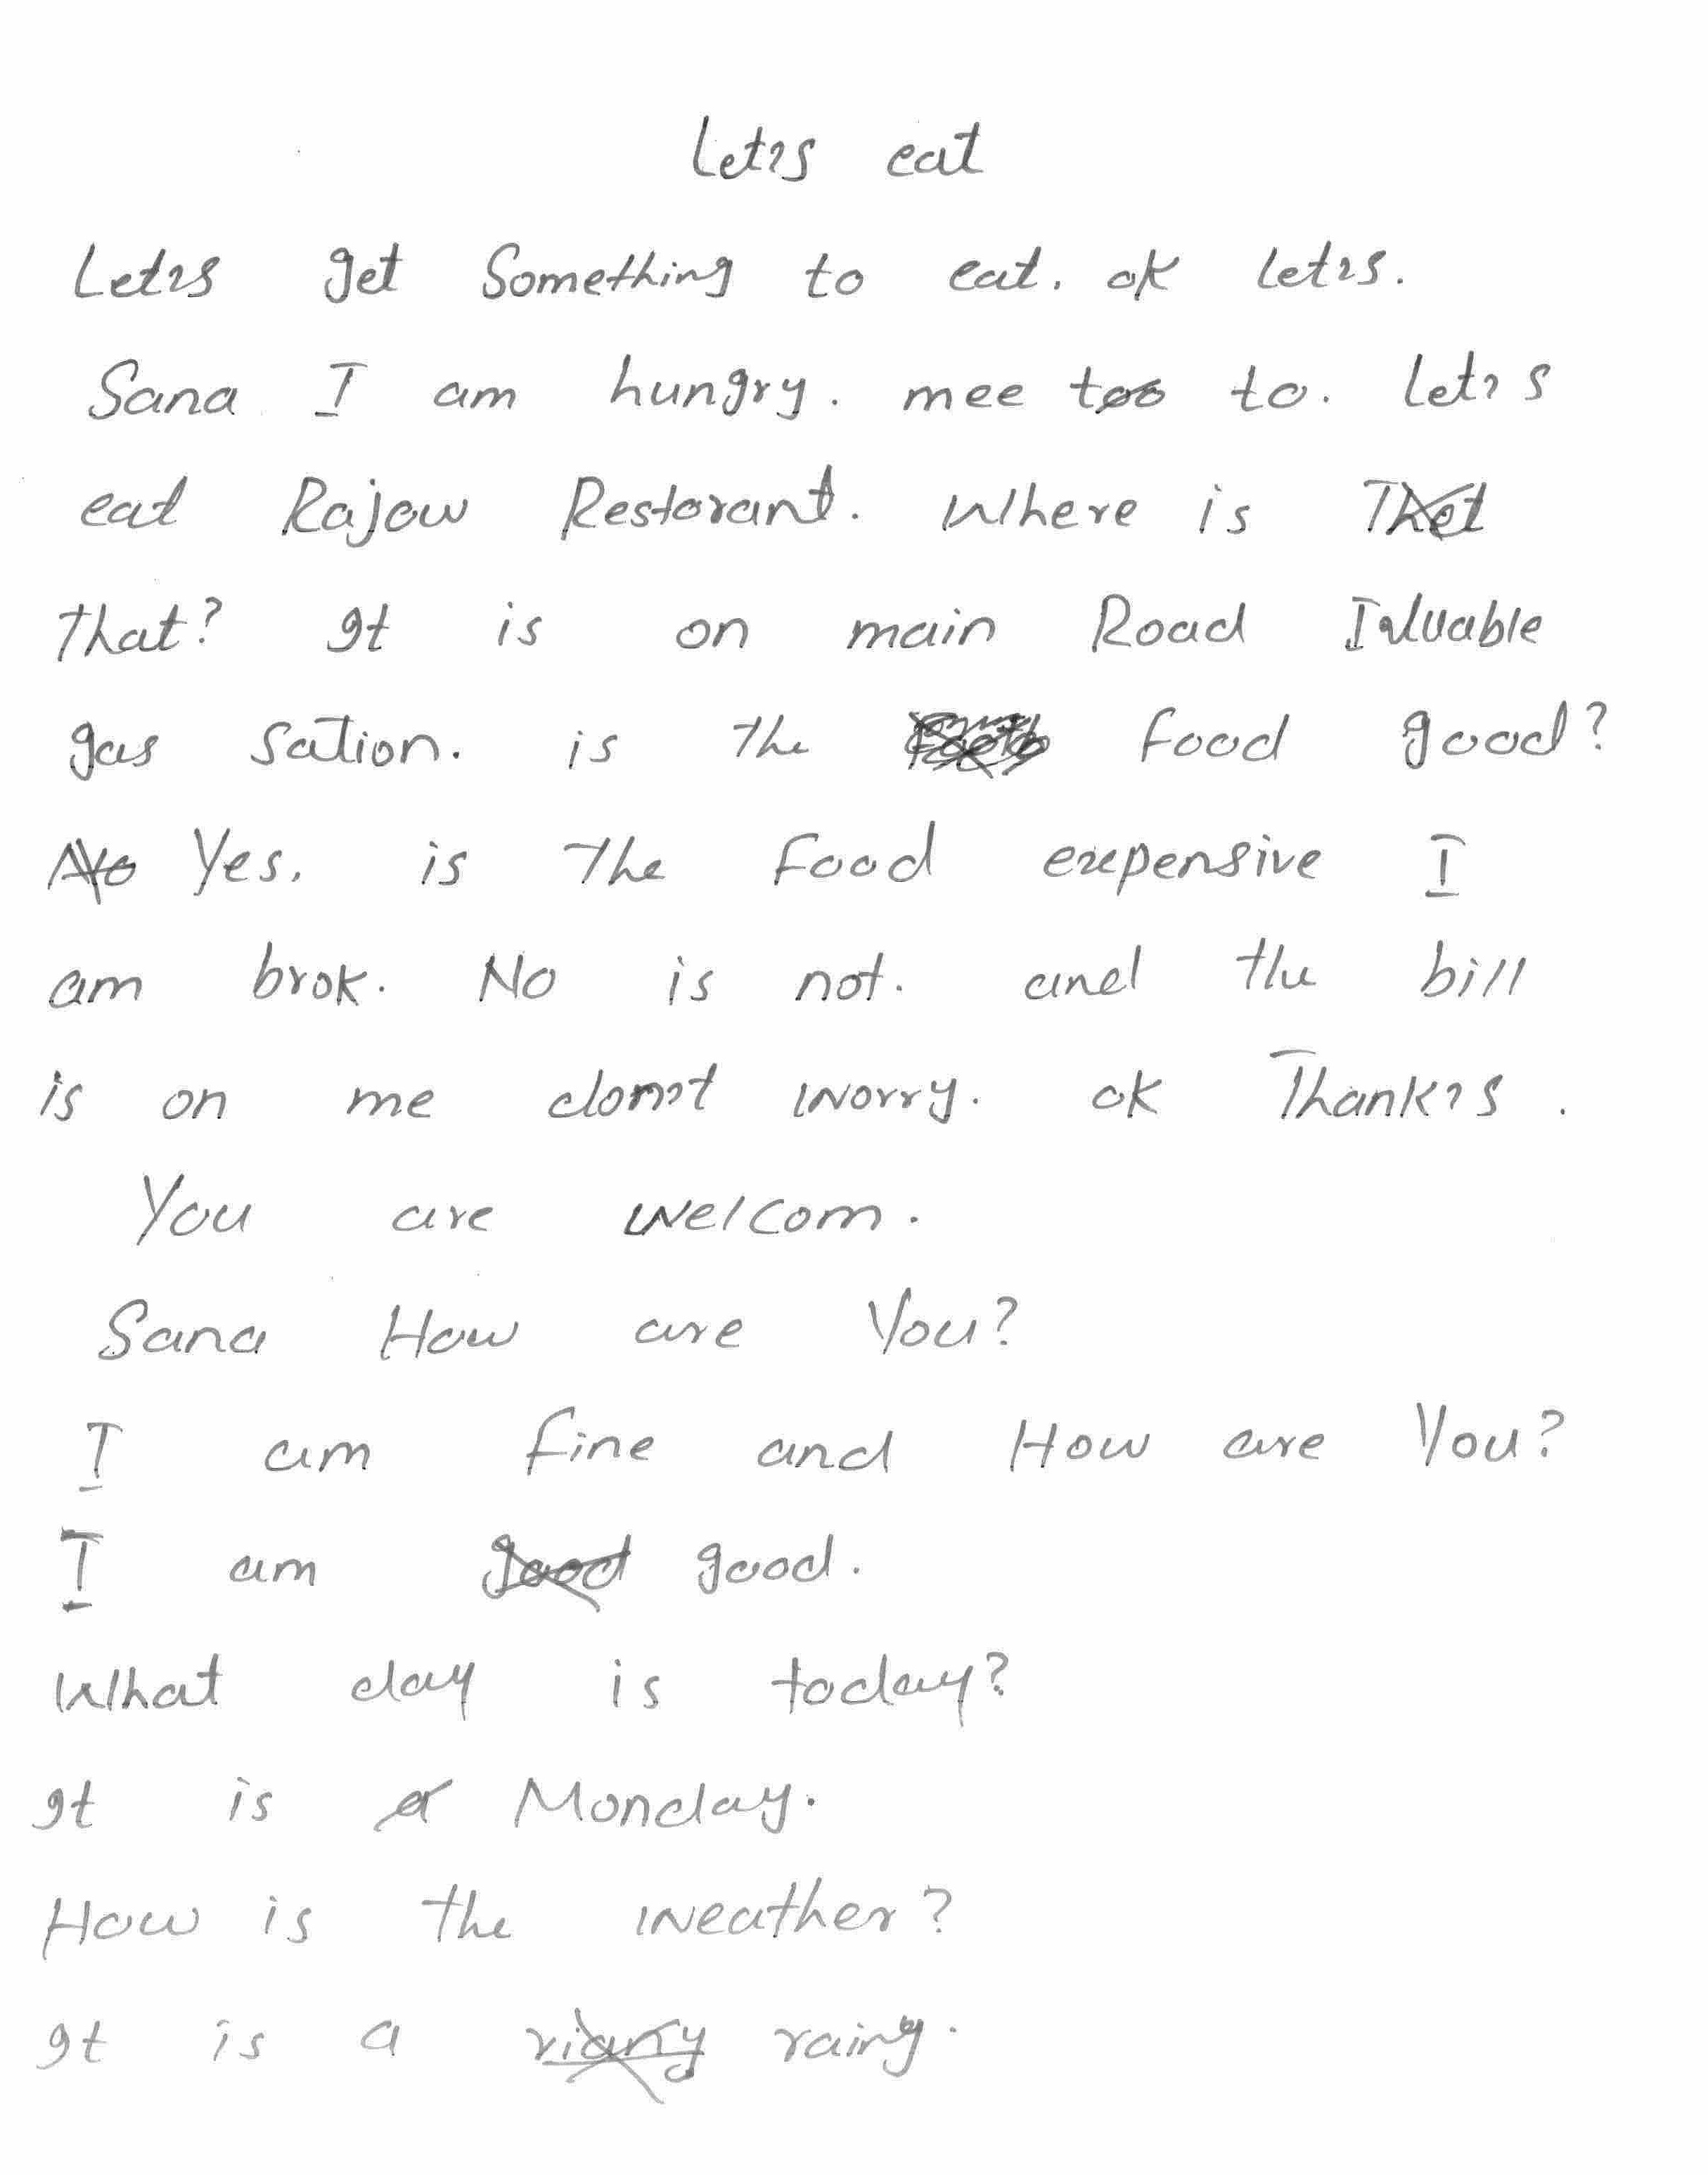 Let's eat
Let's get Something to eat. ok let's.
Sana I am hungry. mee too to. let's
eat Rajow Restorant. Where is That
That? It is on main Road Inluable
gas Sation. is the food good?
No Yes. is The food expensive I
am brok. No is not. and the bill
is on me don't worry. ok Thank's.
You are welcom.
Sana How are You?
I am fine and How are You?
I am good good.
What day is today?
It is a Monday.
How is the weather?
It is a riany rainy.